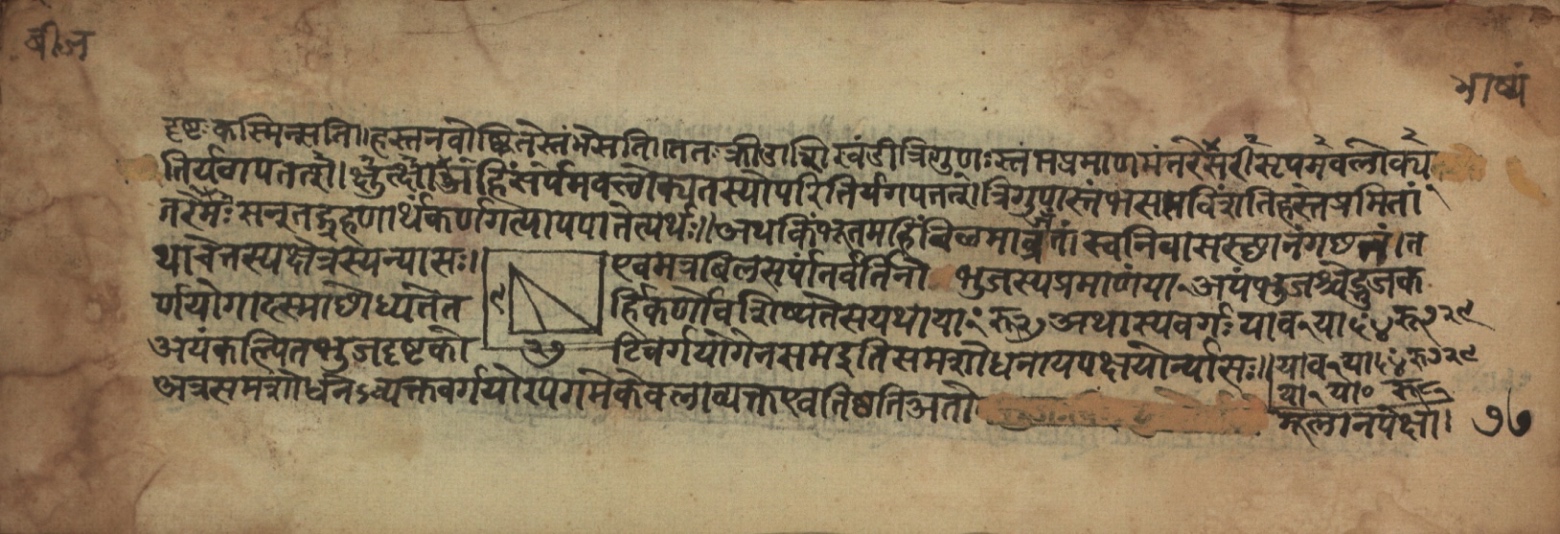 बीज
भाष्यं
दृष्टः कस्मिन्सति॥हस्तनवोछ्रितेस्तंभेसति।ततः क्रीडाशिखंडीत्रिगुणःस्तंभप्रमाणमंतरेसरीसृपमवलोक्य
तिर्यक्पपतत्।हिंसर्पमवलोक्यतस्योपरितिर्यगपतत्।त्रिगुणस्तंभसप्तविंशतिहस्तप्रमितां
सन्नूतद्ग्रहणार्थंकर्णगत्यापपातेत्यर्थः॥अथकिंभूतमहिंबिलमाव्रजंतं।स्वनिवासस्छानंगछंतं।त
थाचैतस्यक्षेत्रस्यन्यासः। एवमत्रबिलसर्पांतर्वर्तिनो भुजस्यप्रमाणंया१अयंभुजश्चेद्भुजक
९
र्णयोगाछोध्यतेत र्हिकर्णोवशिष्यतेसयथाया१ंरू२७अथास्यवर्गःयाव१या५४ंरू७२९
अयंकल्पितभुजदृष्टको २७ टिवर्गयोगेनसमइतिसमशोधनायपक्षयोर्न्यासः॥याव१या५४ंरू७२९
याव१या०रू८१
अत्रसमशोधनेऽव्यक्तवर्गयोरपगमेकेवलाव्यक्तएवतिष्ठतिअतो मूलानपेक्षा। ७७